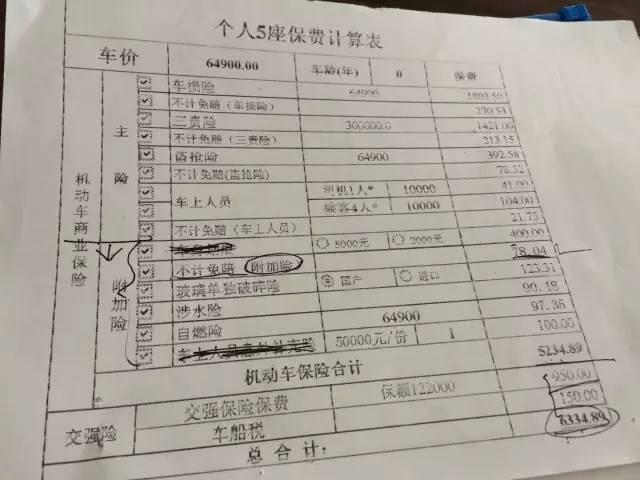 个人5座保费计算表
车价 64900.00 车龄(年) 0 保费
机动车商业保险
主险
车损险 64900 1803.50
不计免赔（车损险） 270.53
三责险 300000.0 1421.00
不计免赔（三责险） 213.15
盗抢险 64900 392.58
不计免赔(盗抢险) 78.52
车上人员 司机1人* 10000 41.00
乘客4人* 10000 104.00
不计免赔（车上人员） 21.75
附加险
5000元 2000元 400.00
不计免赔 附加险 78.04
玻璃单独破碎险 国产 进口 123.31
涉水险 90.18
自燃险 64900 97.35
车上人员意外补充险 50000元/份 1 100.00
机动车保险合计 5234.89
交强险
交强保险保费 保额122000 950.00
车船税 150.00
总合计： 6334.89